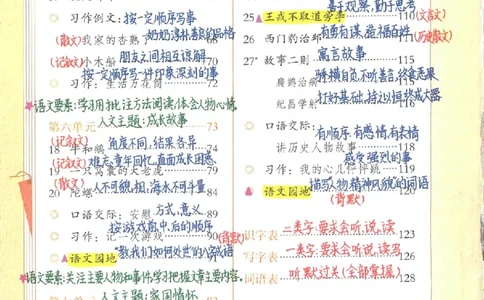 习作例文：按一定顺序写事
(散文)我家的杏熟了 68 奶奶淳朴善良的品格
(记叙文)小木船 朋友之间相互谅解
按一定顺序写一件印象深刻的事
习作：生活万花筒 72
语文要素：学习用批注方法阅读,体会人物心情
人文主题：成长故事
第六单元 73
(记叙文) 角度不同,结果各异
18 牛和鹅
(记叙文) 难忘童年回忆,直面成长困惑
19 一只窝囊的大老虎
(散文) 人不可貌相,海水不可斗量
20 陀螺 84
口语交际：安慰 方式,意义 89
按游戏前中,后的顺序
习作：记一次游戏 90
"教我们如何处世"的八字成语
语文园地 91
语文要素：关注主要人物和事件,学习把握文章主要内容。
人文主题：家国情怀
善于观察,勤于思考
25 王戎不取道旁李 110(文言文)
26 西门豹治邺 有勇有谋,造福百姓 111(历史散文)
27* 故事二则 寓言故事 115
扁鹊治病 骄横自负,不听善言,终食恶果
纪昌学射 打好基础,持之以恒终成大器
口语交际： 有顺序,有感情,有表情
讲历史人物故事 118
感受强烈的事
习作：我的心儿怦怦跳 119
语文园地 描写人物精神风貌的词语 120
(背默)
(背默)识字表 二类字:要求会听,说,读 123
写字表 一类字:要求会听,说,读写 125
词语表 听默过关(全部掌握) 128